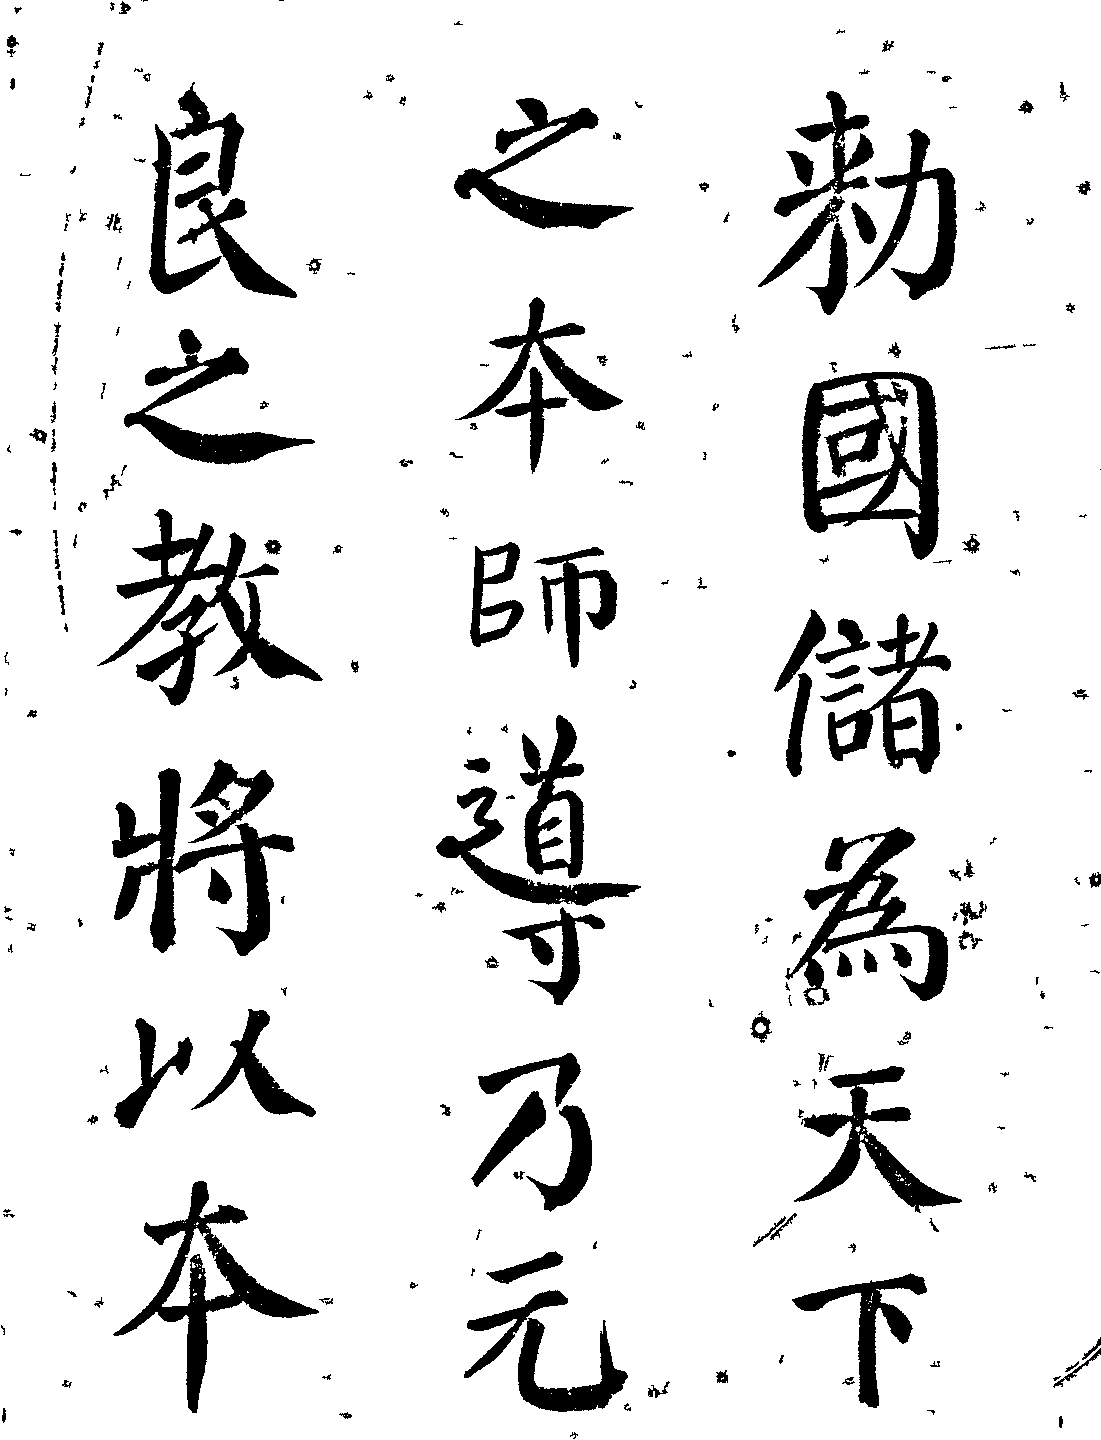 勅國儲為天下
之本師導乃元
良之教將以本